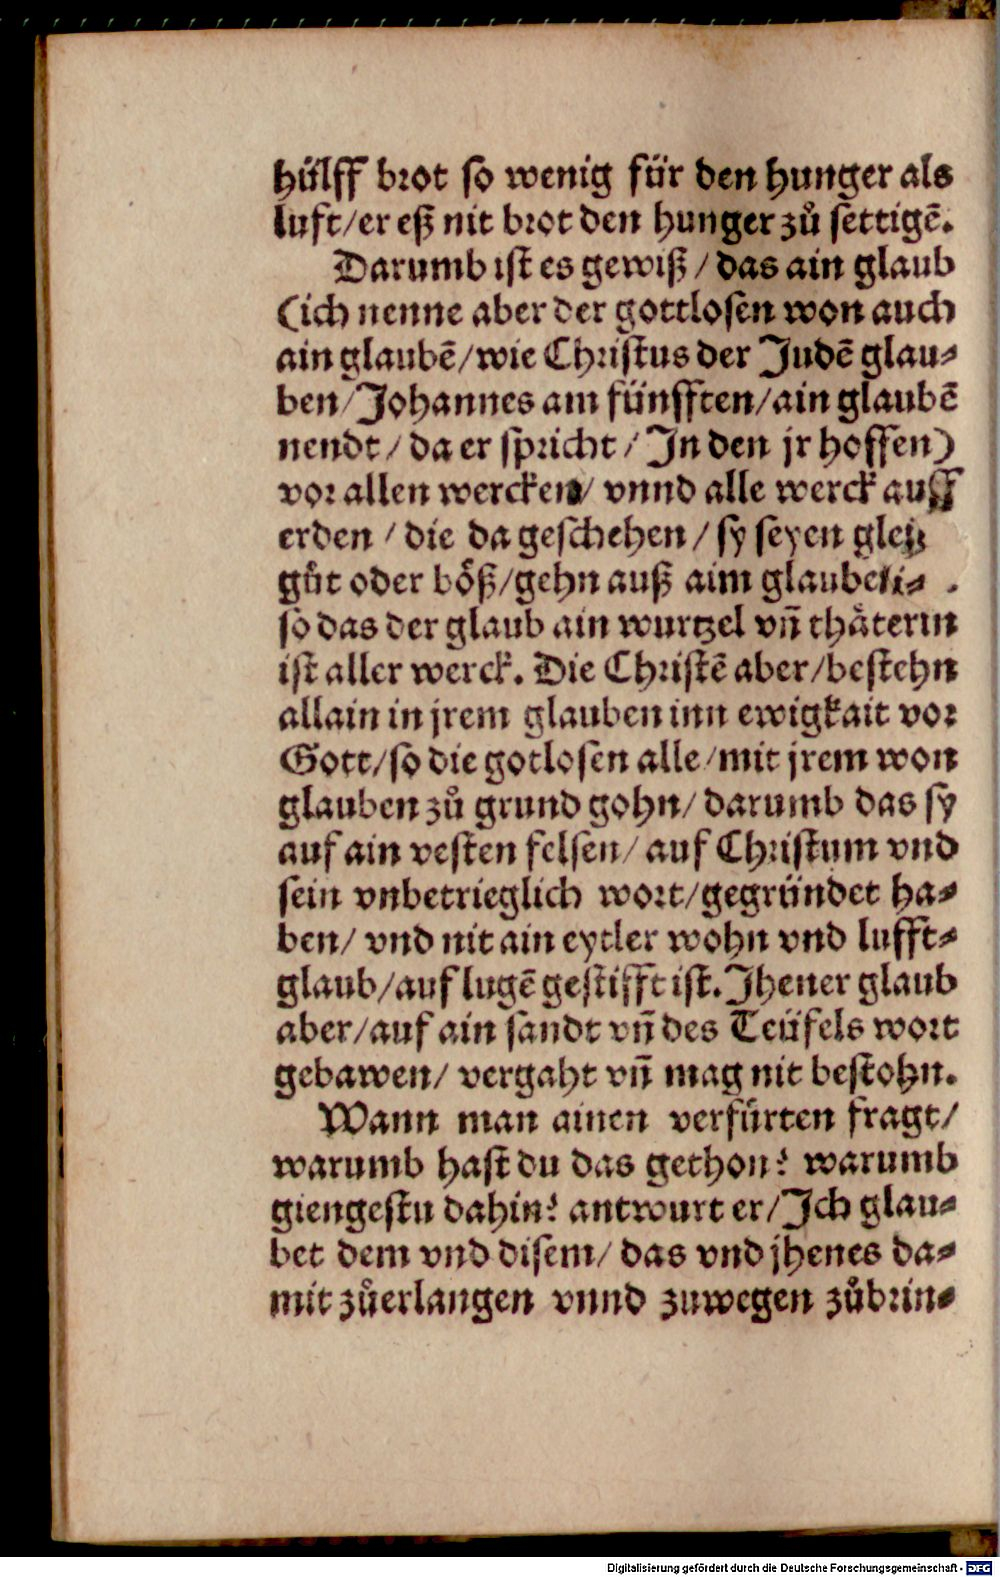 hülff brot so wenig für den hunger als
luft/er eß nit brot den hunger zů settigē.
Darumb ist es gewiß / das ain glaub
(ich nenne aber der gottlosen won auch
ain glaubē/wie Christus der Judē glau⸗
ben/Johannes am fünfften/ain glaubē
nendt / da er spricht / In den jr hoffen)
vor allen wercken/ vnnd alle werck auff
erden / die da geschehen / sy seyen
gůt oder böß/gehn auß aim
so das der glaub ain wurtzel vñ thäterin
ist aller werck. Die Christē aber/bestehn
allain in jrem glauben inn ewigkait vor
Gott/so die gotlosen alle/mit jrem won
glauben zů grund gohn/ darumb das sy
auf ain vesten felsen/ auf Christum vnd
sein vnbetrieglich wort/gegründet ha⸗
ben/ vnd nit ain eytler wohn vnd lufft⸗
glaub/auf lugē gestifft ist. Jhener glaub
aber/auf ain sandt vñ des Teüfels wort
gebawen/ vergaht vñ mag nit bestohn.
Wann man ainen verfürten fragt/
warumb hast du das gethon? warumb
giengestu dahin? antwurt er/Ich glau⸗
bet dem vnd disem/ das vnd jhenes da⸗
mit zůerlangen vnnd zuwegen zůbrin⸗
Digitalisierung gefördert durch die Deutsche Forschungsgemeinschaft - DFG